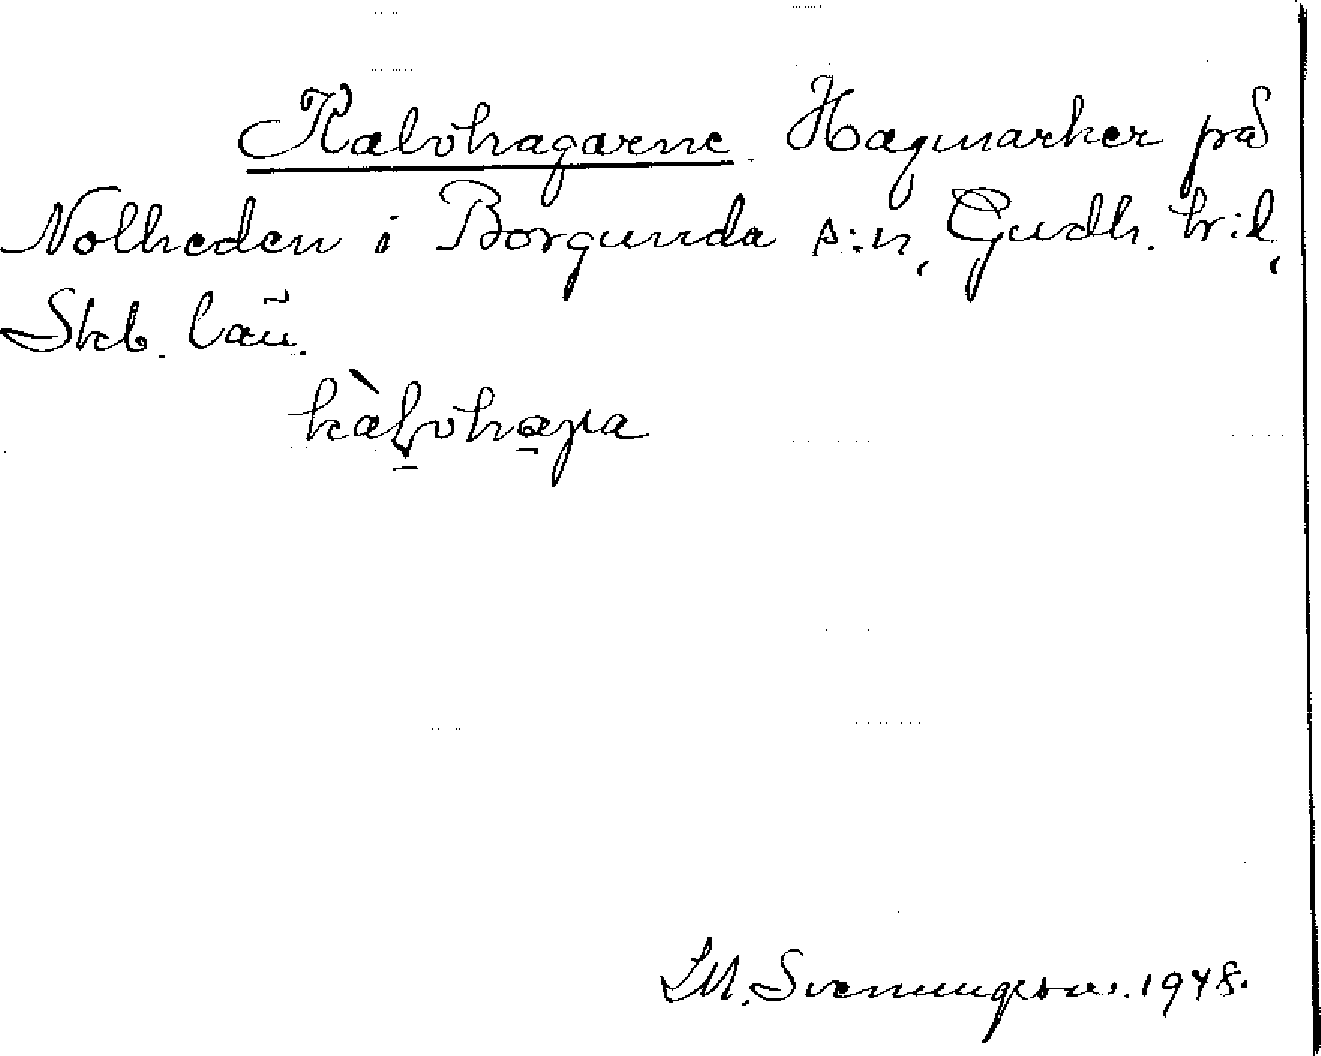 Kalvhagarne. Hagmarker på
Nolheden i Borgunda s:n, Gudh. hr:d,
Skb. län.
kàl̠vha̠ɣa
Svenungsson. 1948.